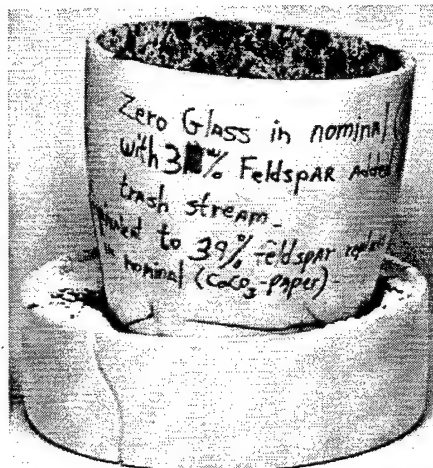 Zero Glass in nominal
with % Feldspar Added
trash stream.
to 39% Feldspar
in nominal (CaCO3-paper)-